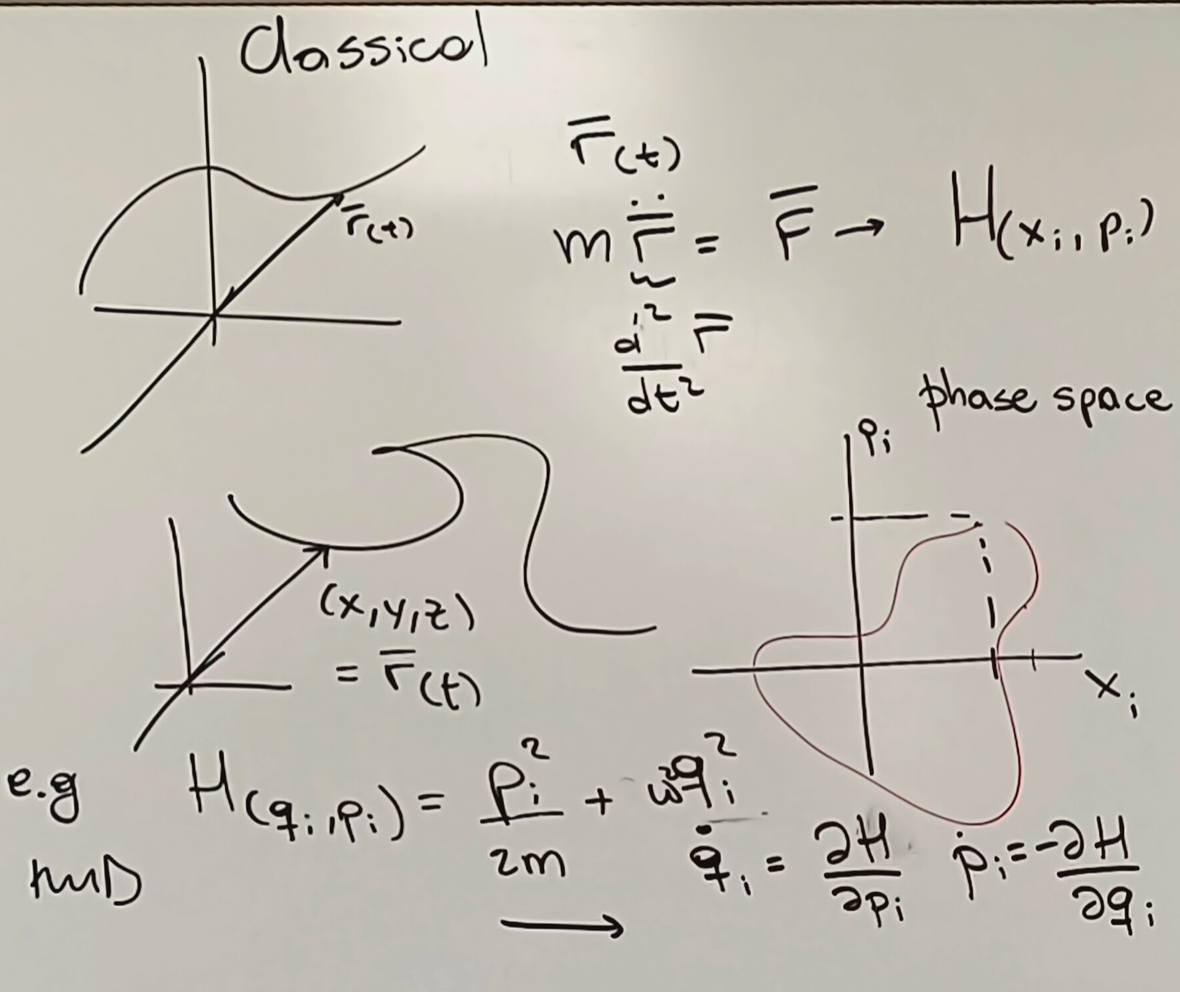 Classical
r̅(t)
r̅(t)
m r̅̈ = F̅ → H(xᵢ, pᵢ)
d² r̅
dt²
phase space
pᵢ
(x,y,z)
= r̅(t)
xᵢ
e.g H(qᵢ,pᵢ) = pᵢ²/2m + ω²qᵢ²
q̇ᵢ = ∂H/∂pᵢ ṗᵢ = -∂H/∂qᵢ
→